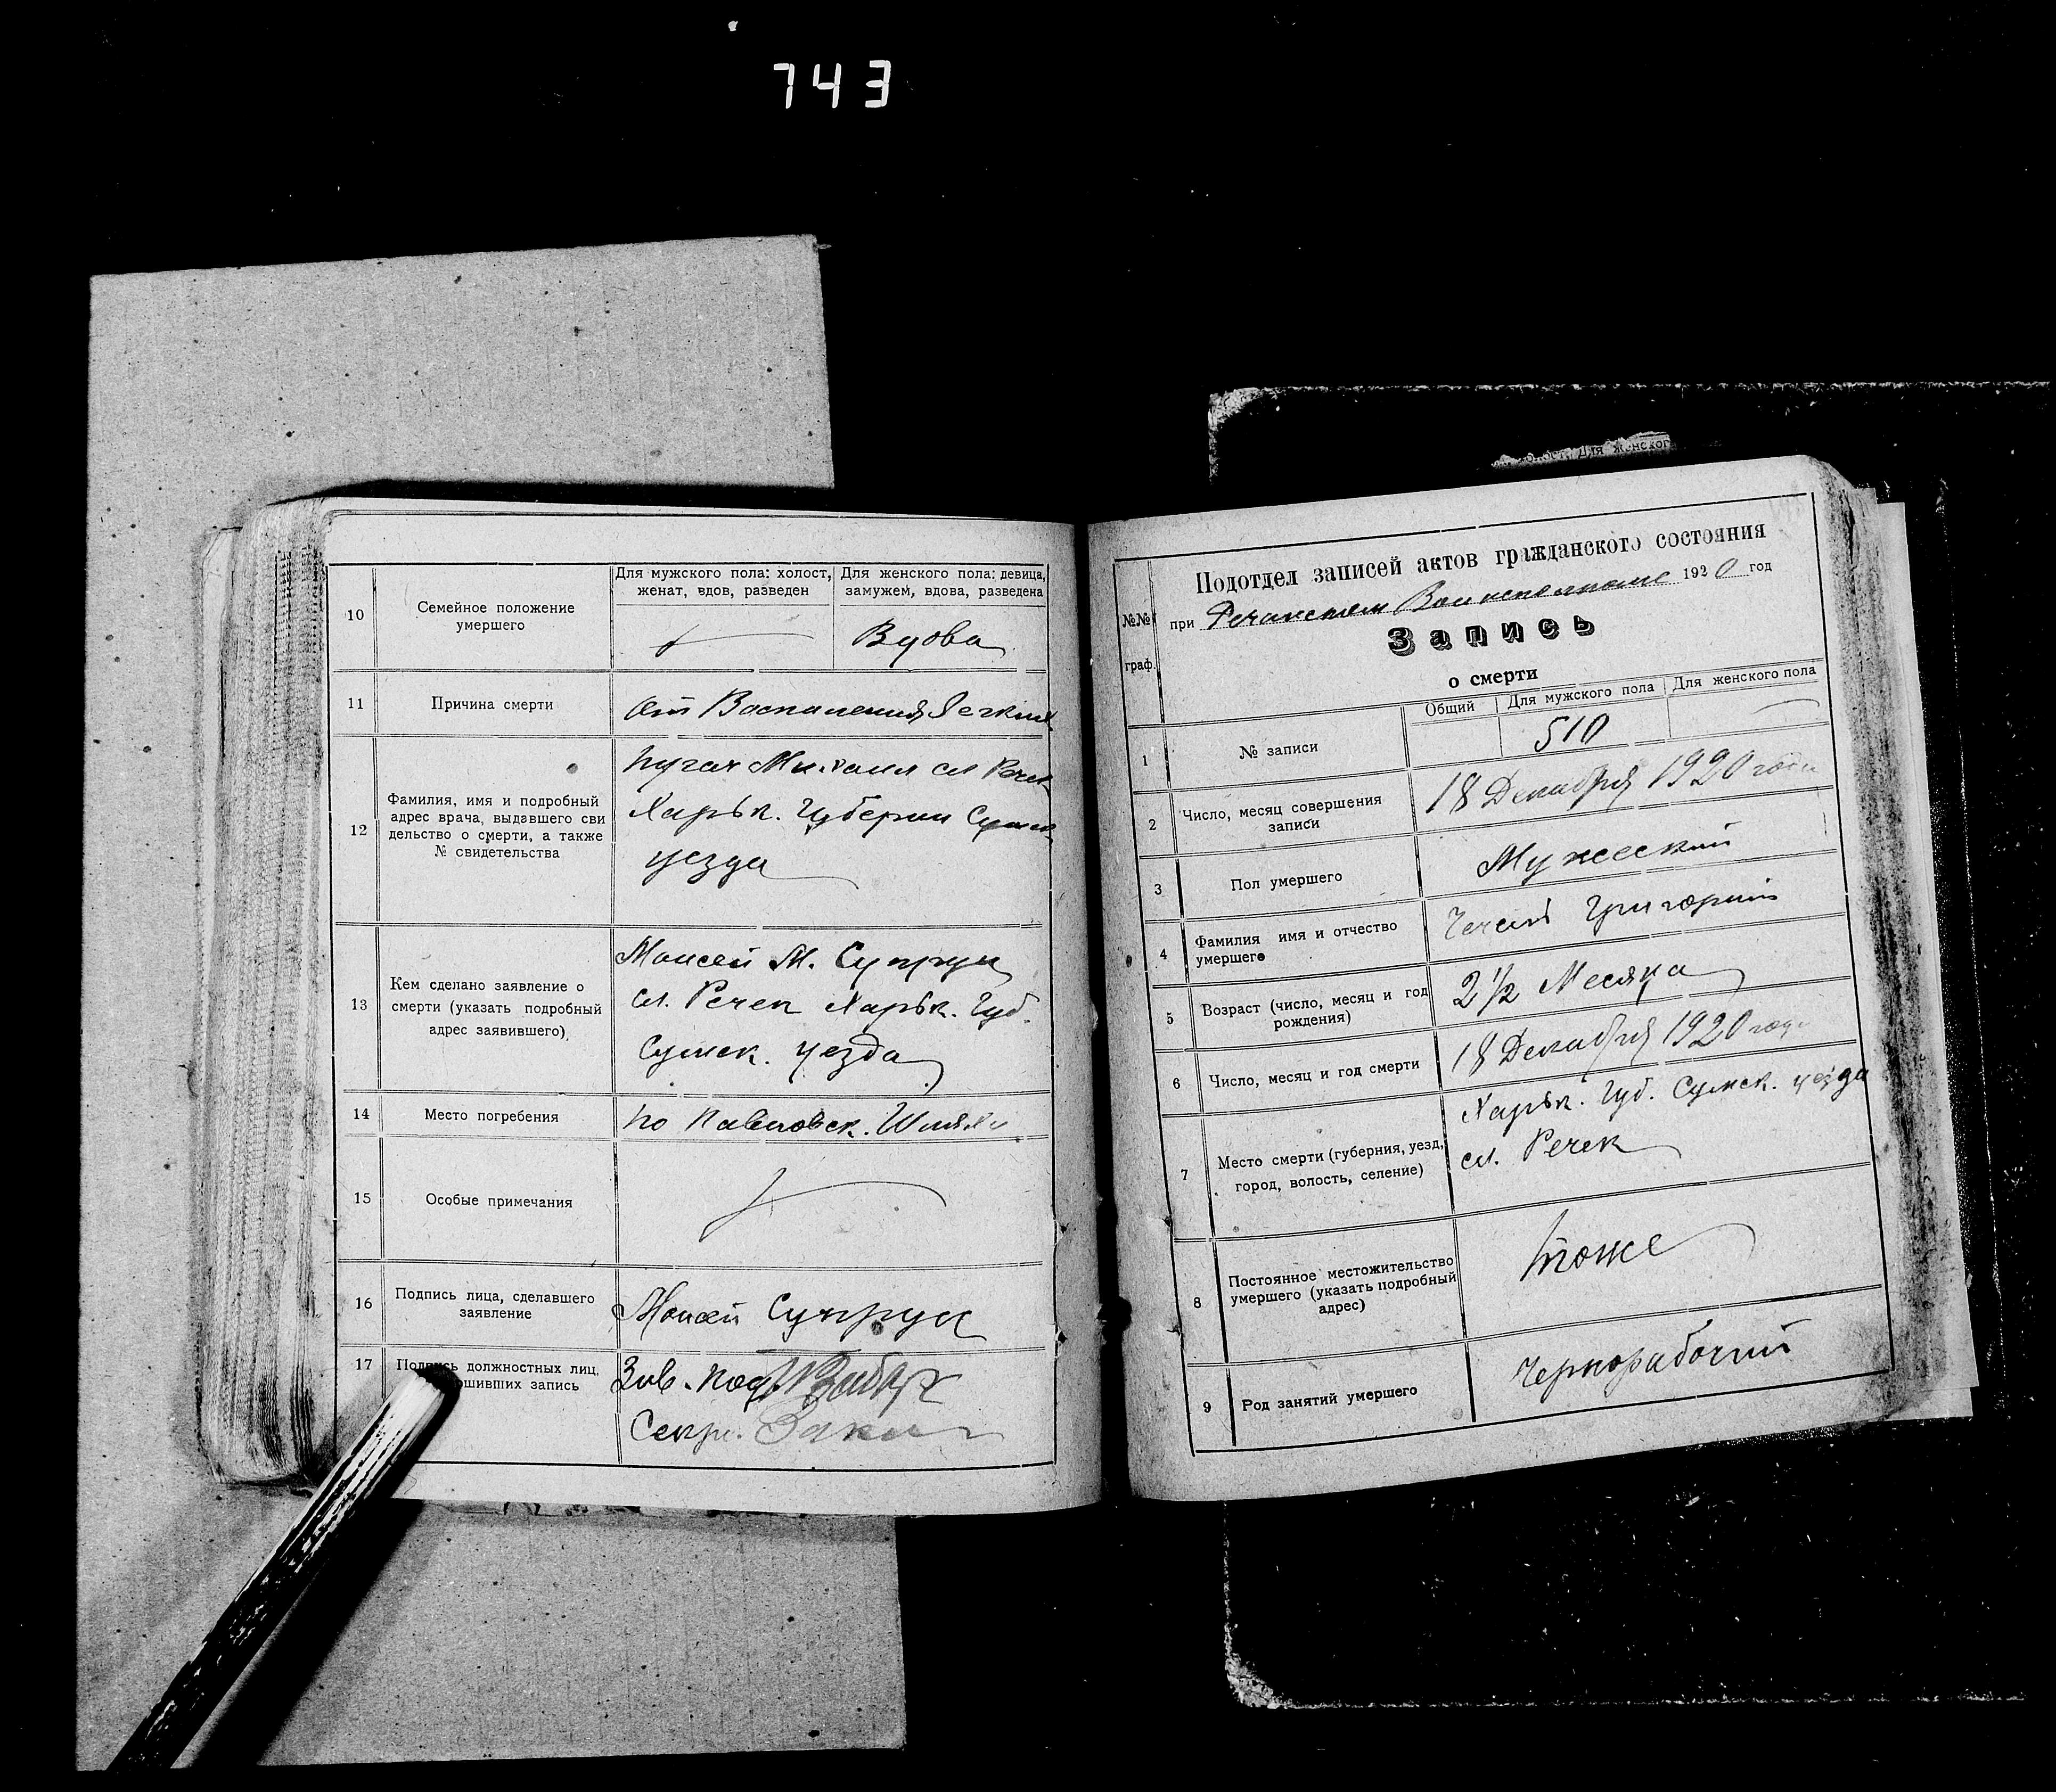 743
10
Семейное положение
умершего
Для мужского пола: холост,
женат, вдов, разведен
Для женского пола: девица,
замужем, вдова, разведена
Вдова
11
Причина смерти
от Воспаления Легких
12
Фамилия, имя и подробный
адрес врача, выдавшего сви
дельство о смерти, а также
№ свидетельства
Пугач Михаил сл Речек
Харьк. Губернии Сумск.
уезда
13
Кем сделано заявление о
смерти (указать подробный
адрес заявившего).
Моисей М. Супрун
сл. Речек Харьк. Губ.
Сумск. уезда
14
Место погребения
по Павловск. Шляху
15
Особые примечания
16
Подпись лица, сделавшего
заявление
Моисей Супрун
17
Подпись должностных лиц,
шивших запись
Зав. под
Секр.
для женского
№№
граф.
Подотдел записей актов гражданского состояния
при Речанском Волисполкоме 1920 год
Запись
о смерти
Общий
Для мужского пола
Для женского пола
1
№ записи
510
2
Число, месяц совершения
записи
18 Декабря 1920 года
3
Пол умершего
Мужеский
4
Фамилия имя и отчество
умершего
Григорий
5
Возраст (число, месяц и год
рождения)
2 1/2 Месяца
6
Число, месяц и год смерти
18 Декабря 1920 года
7
Место смерти (губерния, уезд,
город, волость, селение)
Харьк. Губ. Сумск. уезда
сл. Речек
8
Постоянное местожительство
умершего (указать подробный
адрес)
тоже
9
Род занятий умершего
Чернорабочий